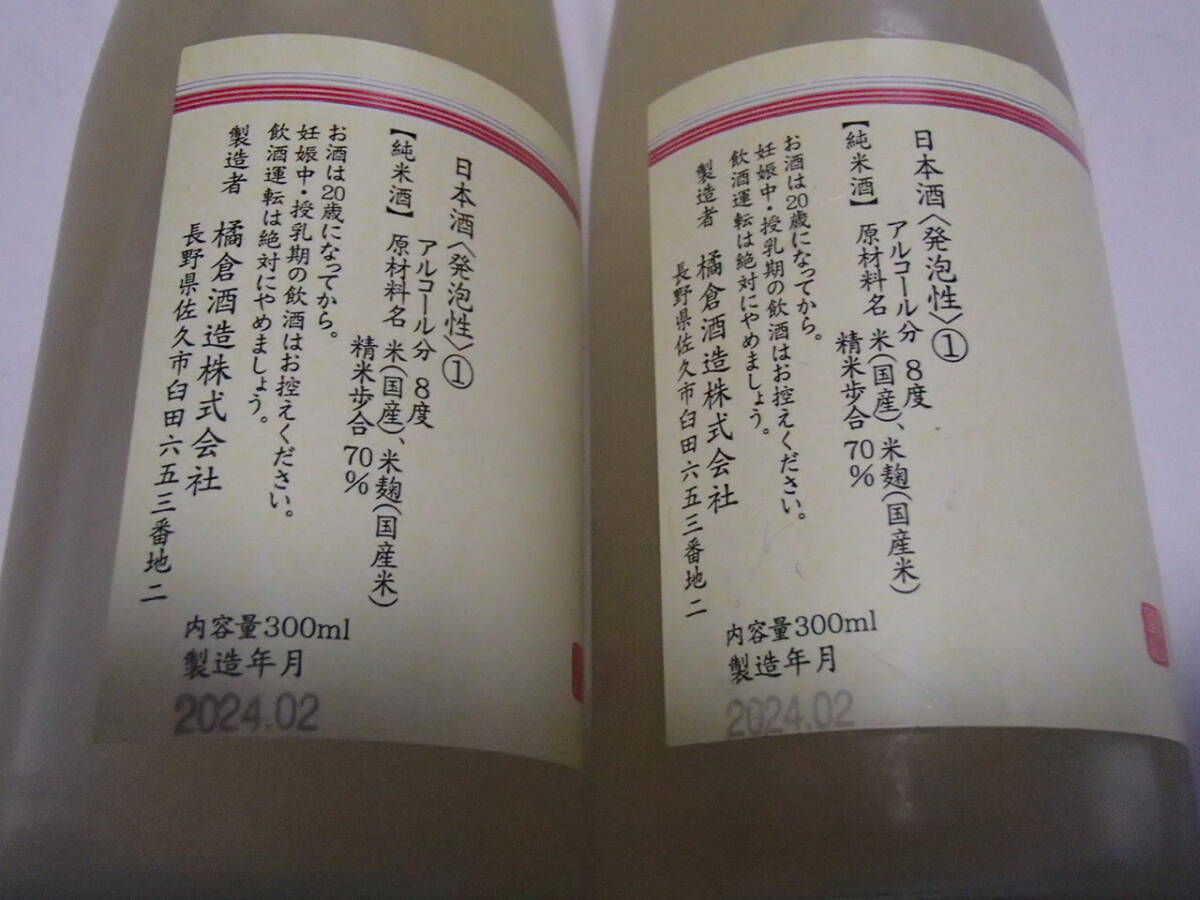 日本酒〈発泡性〉①
アルコール分 8度
【純米酒】 原材料名 米(国産)、米麹(国産米)
精米歩合 70%
お酒は20歳になってから。
妊娠中・授乳期の飲酒はお控えください。
飲酒運転は絶対にやめましょう。
製造者 橘倉酒造株式会社
長野県佐久市臼田六五三番地二
内容量300ml
製造年月
2024.02
日本酒〈発泡性〉①
アルコール分 8度
【純米酒】 原材料名 米(国産)、米麹(国産米)
精米歩合 70%
お酒は20歳になってから。
妊娠中・授乳期の飲酒はお控えください。
飲酒運転は絶対にやめましょう。
製造者 橘倉酒造株式会社
長野県佐久市臼田六五三番地二
内容量300ml
製造年月
2024.02